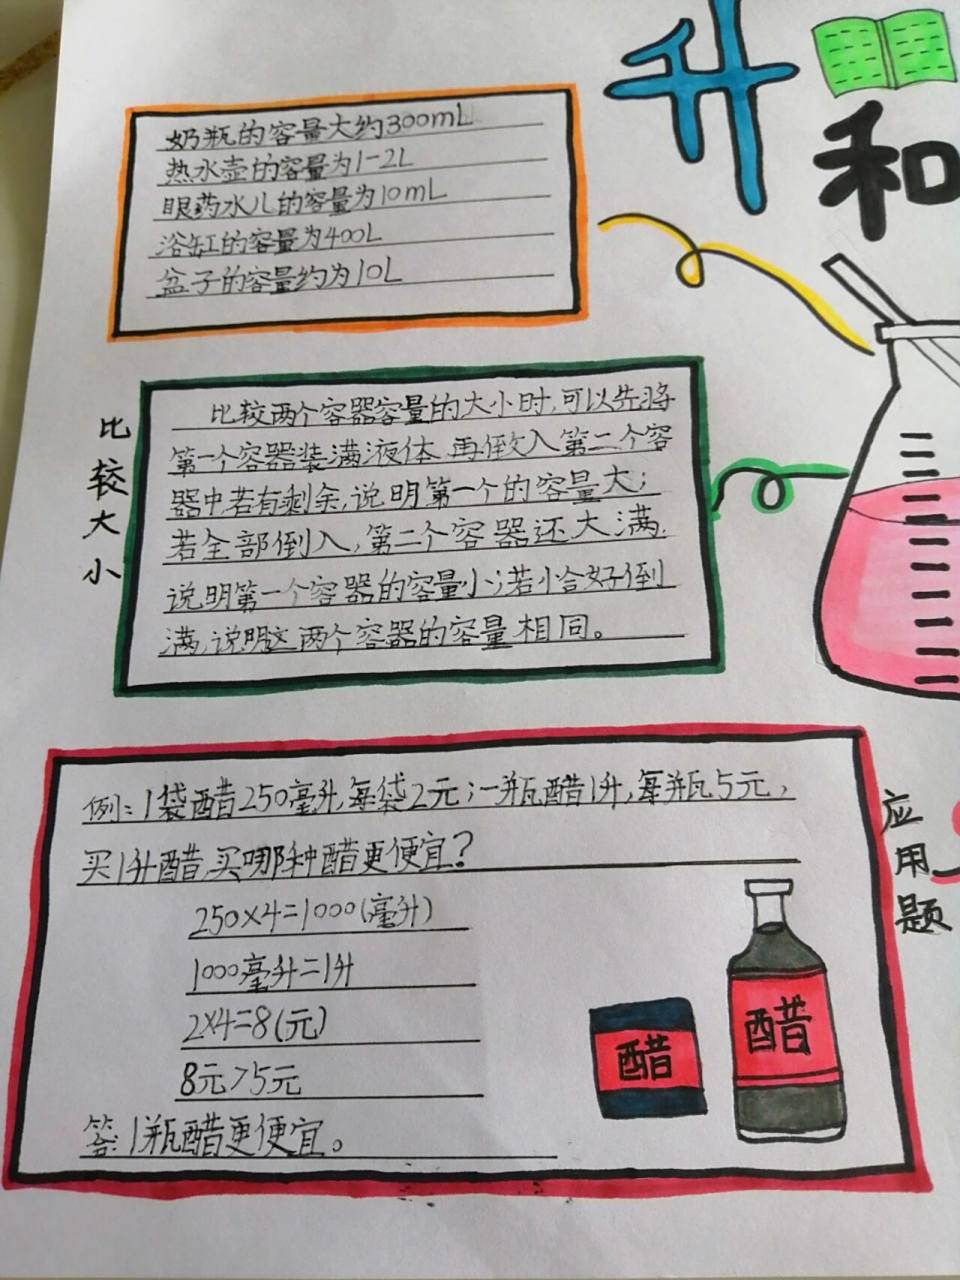 升
和
奶瓶的容量大约300mL
热水壶的容量为1-2L
眼药水儿的容量为10mL
浴缸的容量为400L
盆子的容量约为10L
比较大小
比较两个容器容量的大小时,可以先将
第一个容器装满液体,再倒入第二个容
器中若有剩余,说明第一个的容量大;
若全部倒入,第二个容器还大满.
说明第一个容器的容量小;若小合好倒
满,说明这两个容器的容量相同。
应用题
例:1袋醋250毫升,每袋2元;一瓶醋1升,每瓶5元,
买1升醋,买哪种醋更便宜?
250×4=1000(毫升)
1000毫升=1升
2×4=8(元)
8元>5元
答:1瓶醋更便宜。
醋
醋